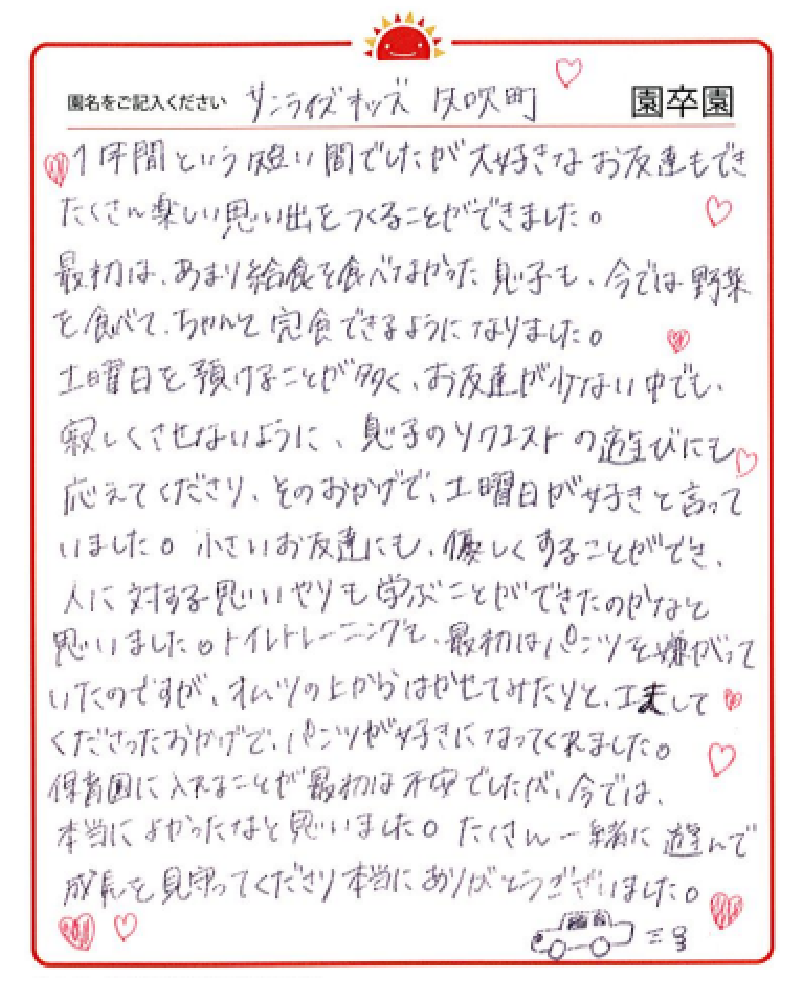 園名をご記入ください サンライズキッズ 矢吹町 園卒園
1年間という短い間でしたが大好きなお友達もでき
たくさん楽しい思い出をつくることができました。
最初は、あまり給食を食べなかった息子も、今では野菜
を食べて、ちゃんと完食できるようになりました。
土曜日を預けることが多く、お友達が少ない中でも、
寂しくさせないように、息子のリクエストの遊びにも
応えてくださり、そのおかげで、土曜日が好きと言って
いました。小さいお友達にも、優しくすることができ、
人に対する思いやりも学ぶことができたのかなと
思いました。トイレトレーニングも、最初はパンツを嫌がって
いたのですが、オムツの上からはかせてみたりと、工夫して
くださったおかげで、パンツが好きになってくれました。
保育園に入れることが最初は不安でしたが、今では、
本当によかったなと思いました。たくさん一緒に遊んで
成長を見守ってくださり本当にありがとうございました。